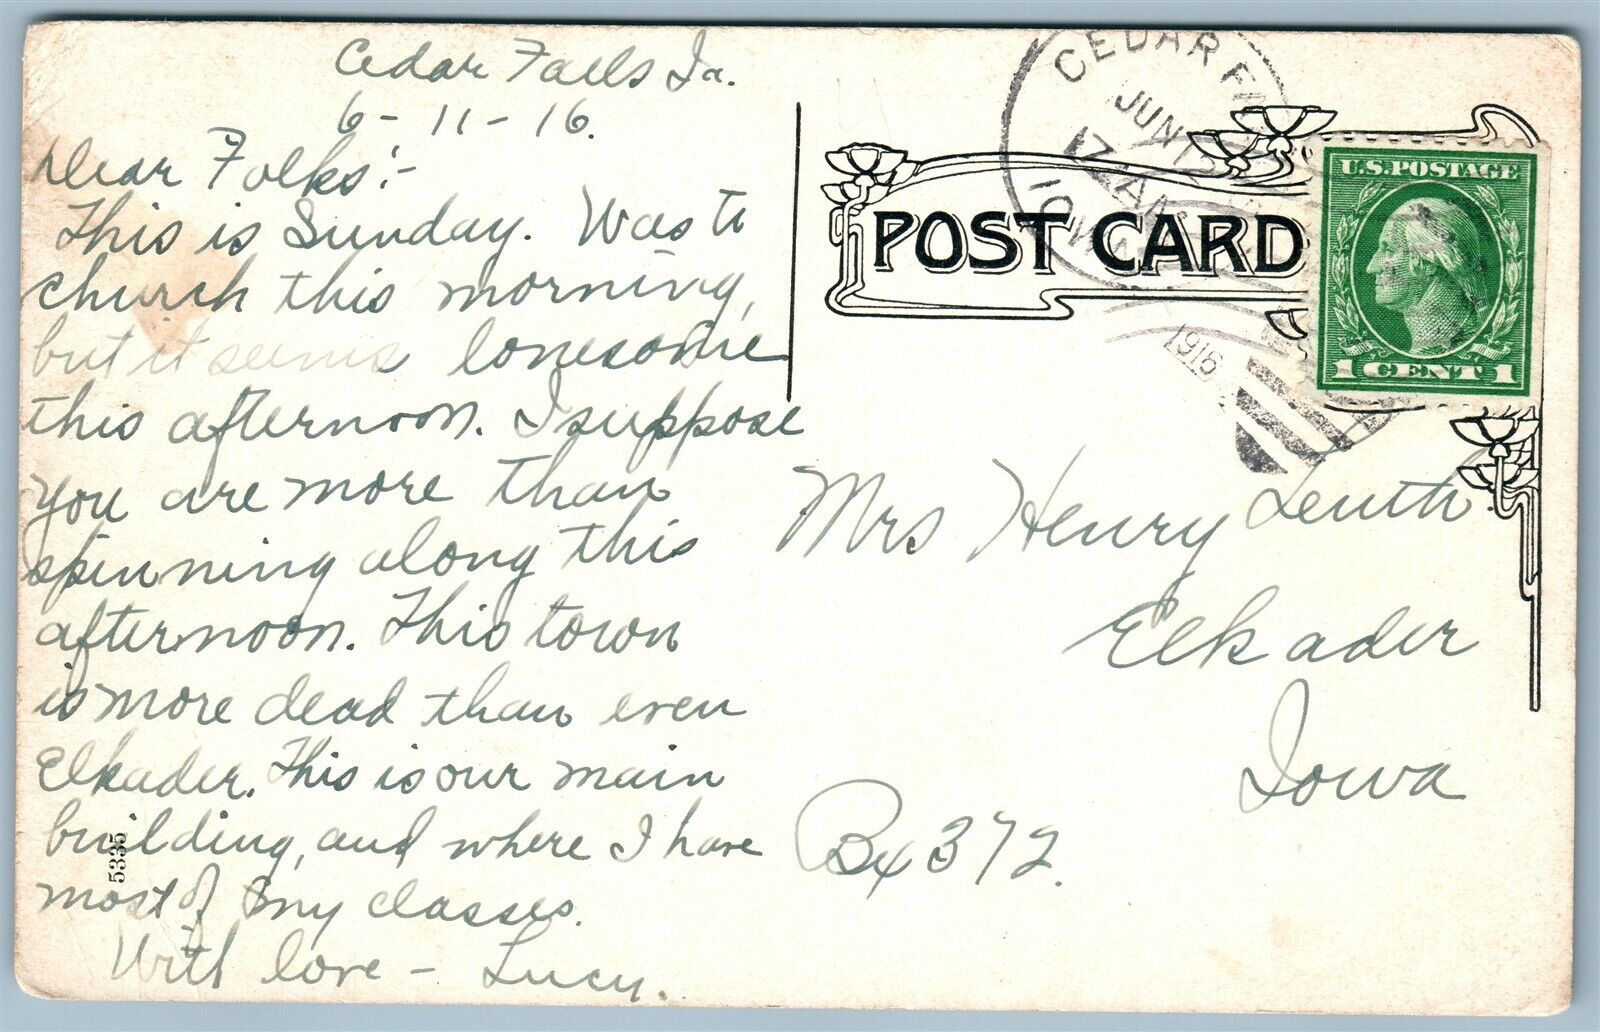 Cedar Falls Ia.
6-11-16.
Dear Folks:-
This is Sunday. Was to
church this morning,
but it seems lonesome
this afternoon. I suppose
you are more than
spinning along this
afternoon. This town
is more dead than even
Elkader. This is our main
building, and where I have
most of my classes.
With love - Lucy.
5335
POST CARD
CEDAR
JUN
7 AM
IOWA
1916
U.S. POSTAGE
1 CENT 1
Mrs Henry Leuth
Elkader
Iowa
Bx 372.